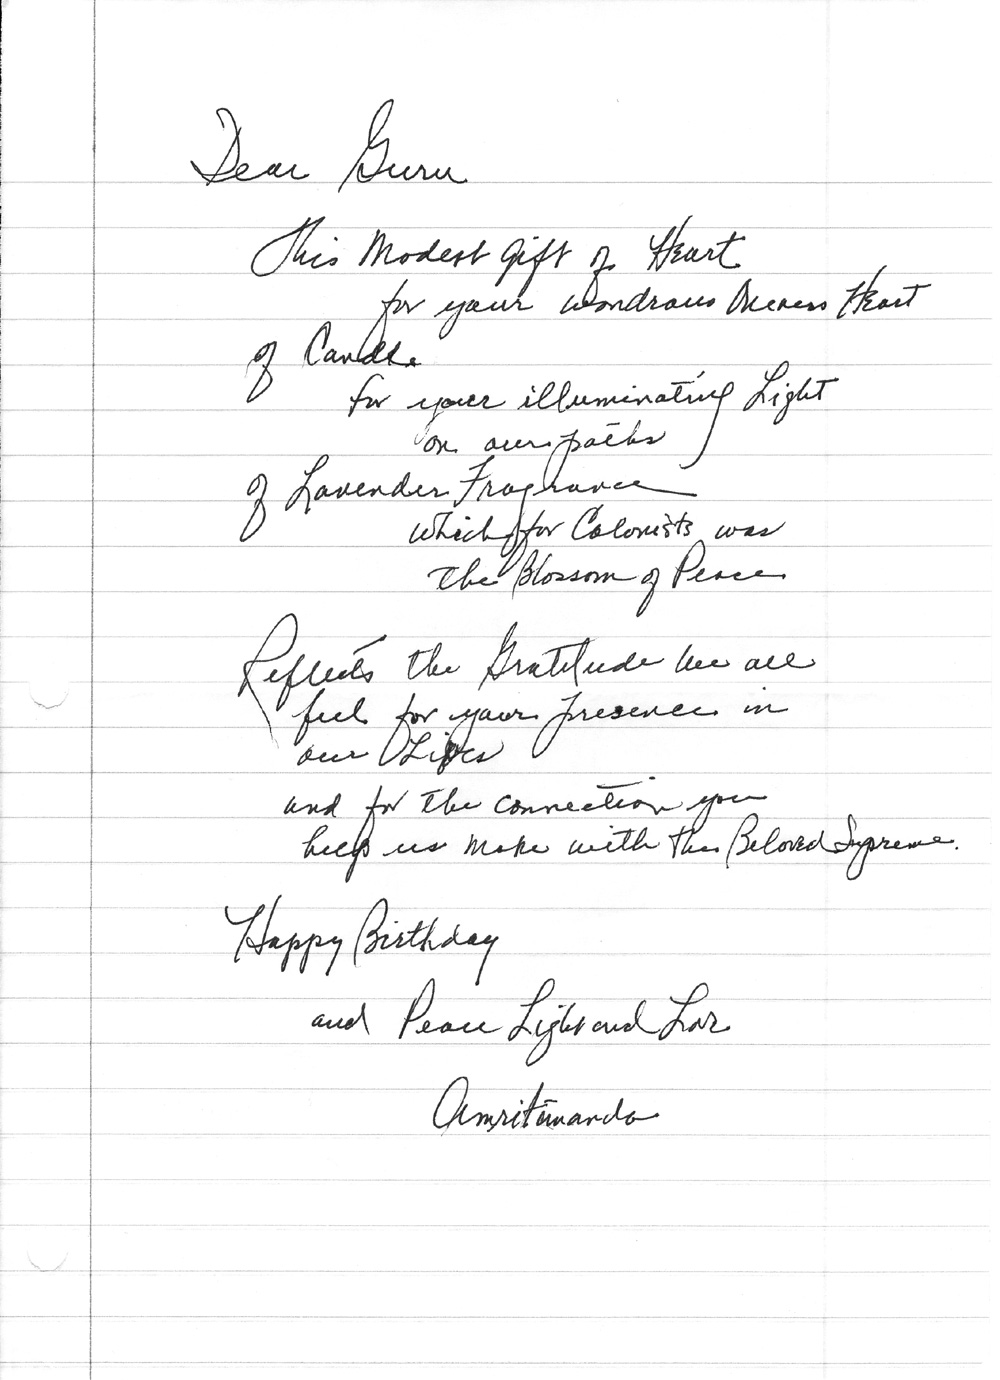 Dear Guru
This Modest Gift of Heart
for your wondrous Oneness Heart
of Candle
for your illuminating Light
on our paths
of Lavender Fragrance
which for Colonists was
the Blossom of Peace
Reflects the Gratitude we all
feel for your presence in
our Lives
and for the connection you
help us make with the Beloved Supreme.
Happy Birthday
and Peace Light and Love